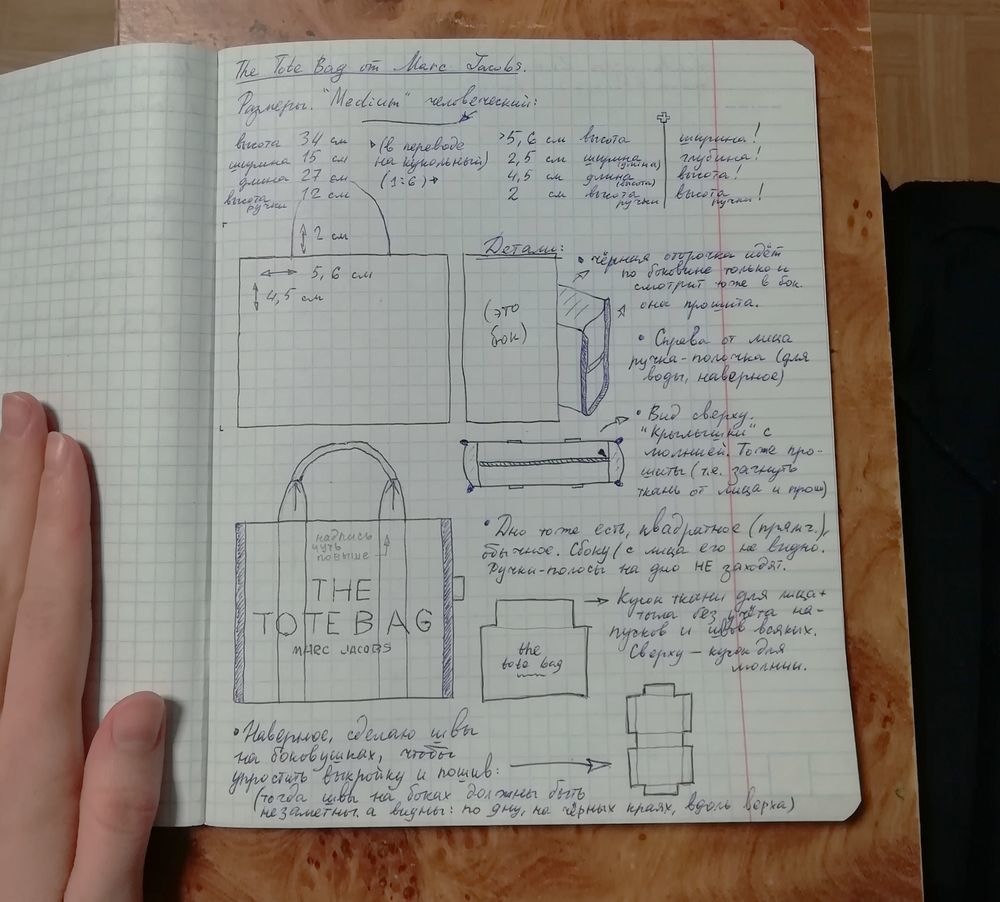 The Tote Bag от Marc Jacobs.
Размеры. "Medium" человеческий:
высота 34 см
ширина 15 см
длина 27 см
высота ручки 12 см
(в переводе
на кукольный)
(1:6) →
>5,6 см высота
2,5 см ширина (длина)
4,5 см длина (высота)
2 см высота ручки
ширина!
глубина!
высота!
высота ручки!
2 см
5,6 см
4,5 см
Детали:
(это
бок)
• чёрная оторочка идёт
по боковине только и
смотрит тоже в бок.
она прошита.
• Справа от лица
ручка-полочка (для
воды, наверное)
• Вид сверху.
"Крылышки" с
молнией. Тоже про-
шиты (т.е. загнуть
ткань от лица и прош)
надпись
чуть
повыше
THE
TOTE BAG
MARC JACOBS
• Дно тоже есть, квадратное (прямч.),
обычное. Сбоку/с лица его не видно.
Ручки-полосы на дно НЕ заходят.
the
tote bag
→ Кусок ткани для лица+
тыла без учёта на-
пусков и швов всяких.
Сверху — кусок для
молнии.
• Наверное, сделаю швы
на боковушках, чтобы
упростить выкройку и пошив:
(тогда швы на боках должны быть
незаметны. а видны: по дну, на чёрных краях, вдоль верха)